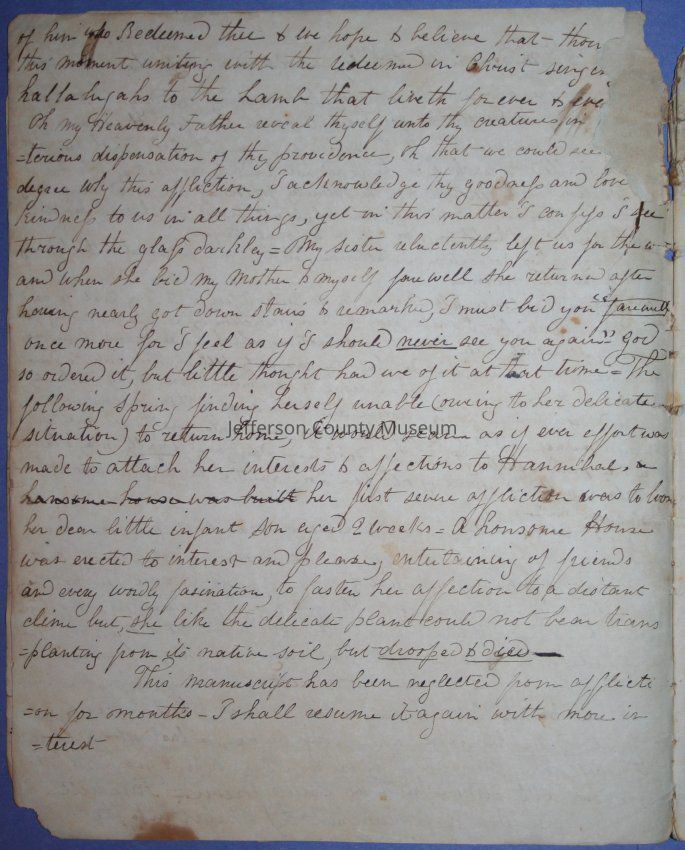 of him who Redeemed thee & we hope & believe that thou
this moment uniting with the redeemed in Christ singin
hallalugahs to the Lamb that liveth for ever & eve
Oh my Heavenly Father reveal thyself unto thy creatures in
=terious dispensation of thy providence, Oh that we could see
degree why this affliction, I acknowledge thy goodness and love
kindness to us in all things, yet in this matter I confess I see
through the glass darkley = My sister reluctently left us for the w
and when she bid my Mother & myself farewell she returned after
having nearly got down stairs & remarked, I must bid you "farewell
once more for I feel as if I should never see you again" god
so ordered it, but little thought had we of it at that time = The
following Spring finding herself unable (owing to her delicate
situation) to return home, it would seem as if ever effort was
made to attach her interests & affections to Hannibal. a
hansome house was built her first severe affliction was to
her dear little infant son aged 2 weeks = A honsome House
was erected to interest and please, entertaining of friends
and every wordly fasination, to fasten her affection to a distant
clime but, she like the delicate plant could not bear trans
=planting from its native soil, but drooped & died
This manuscript has been neglected from afflicti
=on for months - I shall resume it again with more in
=terest
Jefferson County Museum